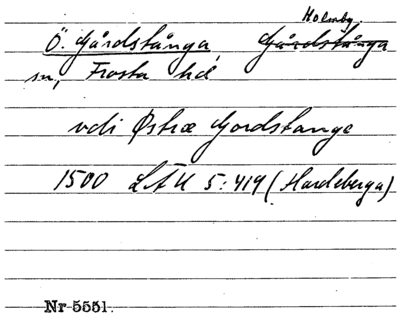 Holmby.
Ö. Gårdstånga Gårdstånga
sn, Frosta hd
vdi Østræ Gordstange
1500 LÄU 5:419 (Hardeberga)
Nr 5551.